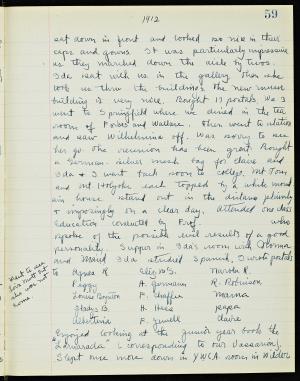 59
1912
sat down in front and looked so nice in their
caps and gowns. It was particularly impressive
as they marched down the aisle by twos.
Ida sat with us in the gallery. Then she
took us thru the buildings. The new music
building is very nice. Bought 17 postals. We 3
went to Springfield where we dined in the tea
room of Forbes and Wallace. Then went to station
and saw Wilhelmina off. Was sorry to see
her go. The reunion has been great. Bought
a German silver mesh bag for Claire and
Ida & I went back soon to college. Mt Tom
and Mt Holyoke each topped by a white mount
ain house stand out in the distance plainly
& imposingly on a clear day. Attended one class
Education conducted by Prof. who
spoke of the possible evil results of a good
personality. Supper in Ida's room with
and Maud. Ida studied Spanish. I wrote postals
to Agnes R. B.S. Martha R.
Peggy A. Germann R. Robinson
Louise Boynton F. Shaffer mamma
Gladys B. H. Hess papa
Albertina F. Jewell Claire
Went to see
but
she was not
home.
Enjoyed looking at the junior year book the
"Llamarada" (corresponding to our Vassarion).
Slept once more down in YWCA room in Wilder